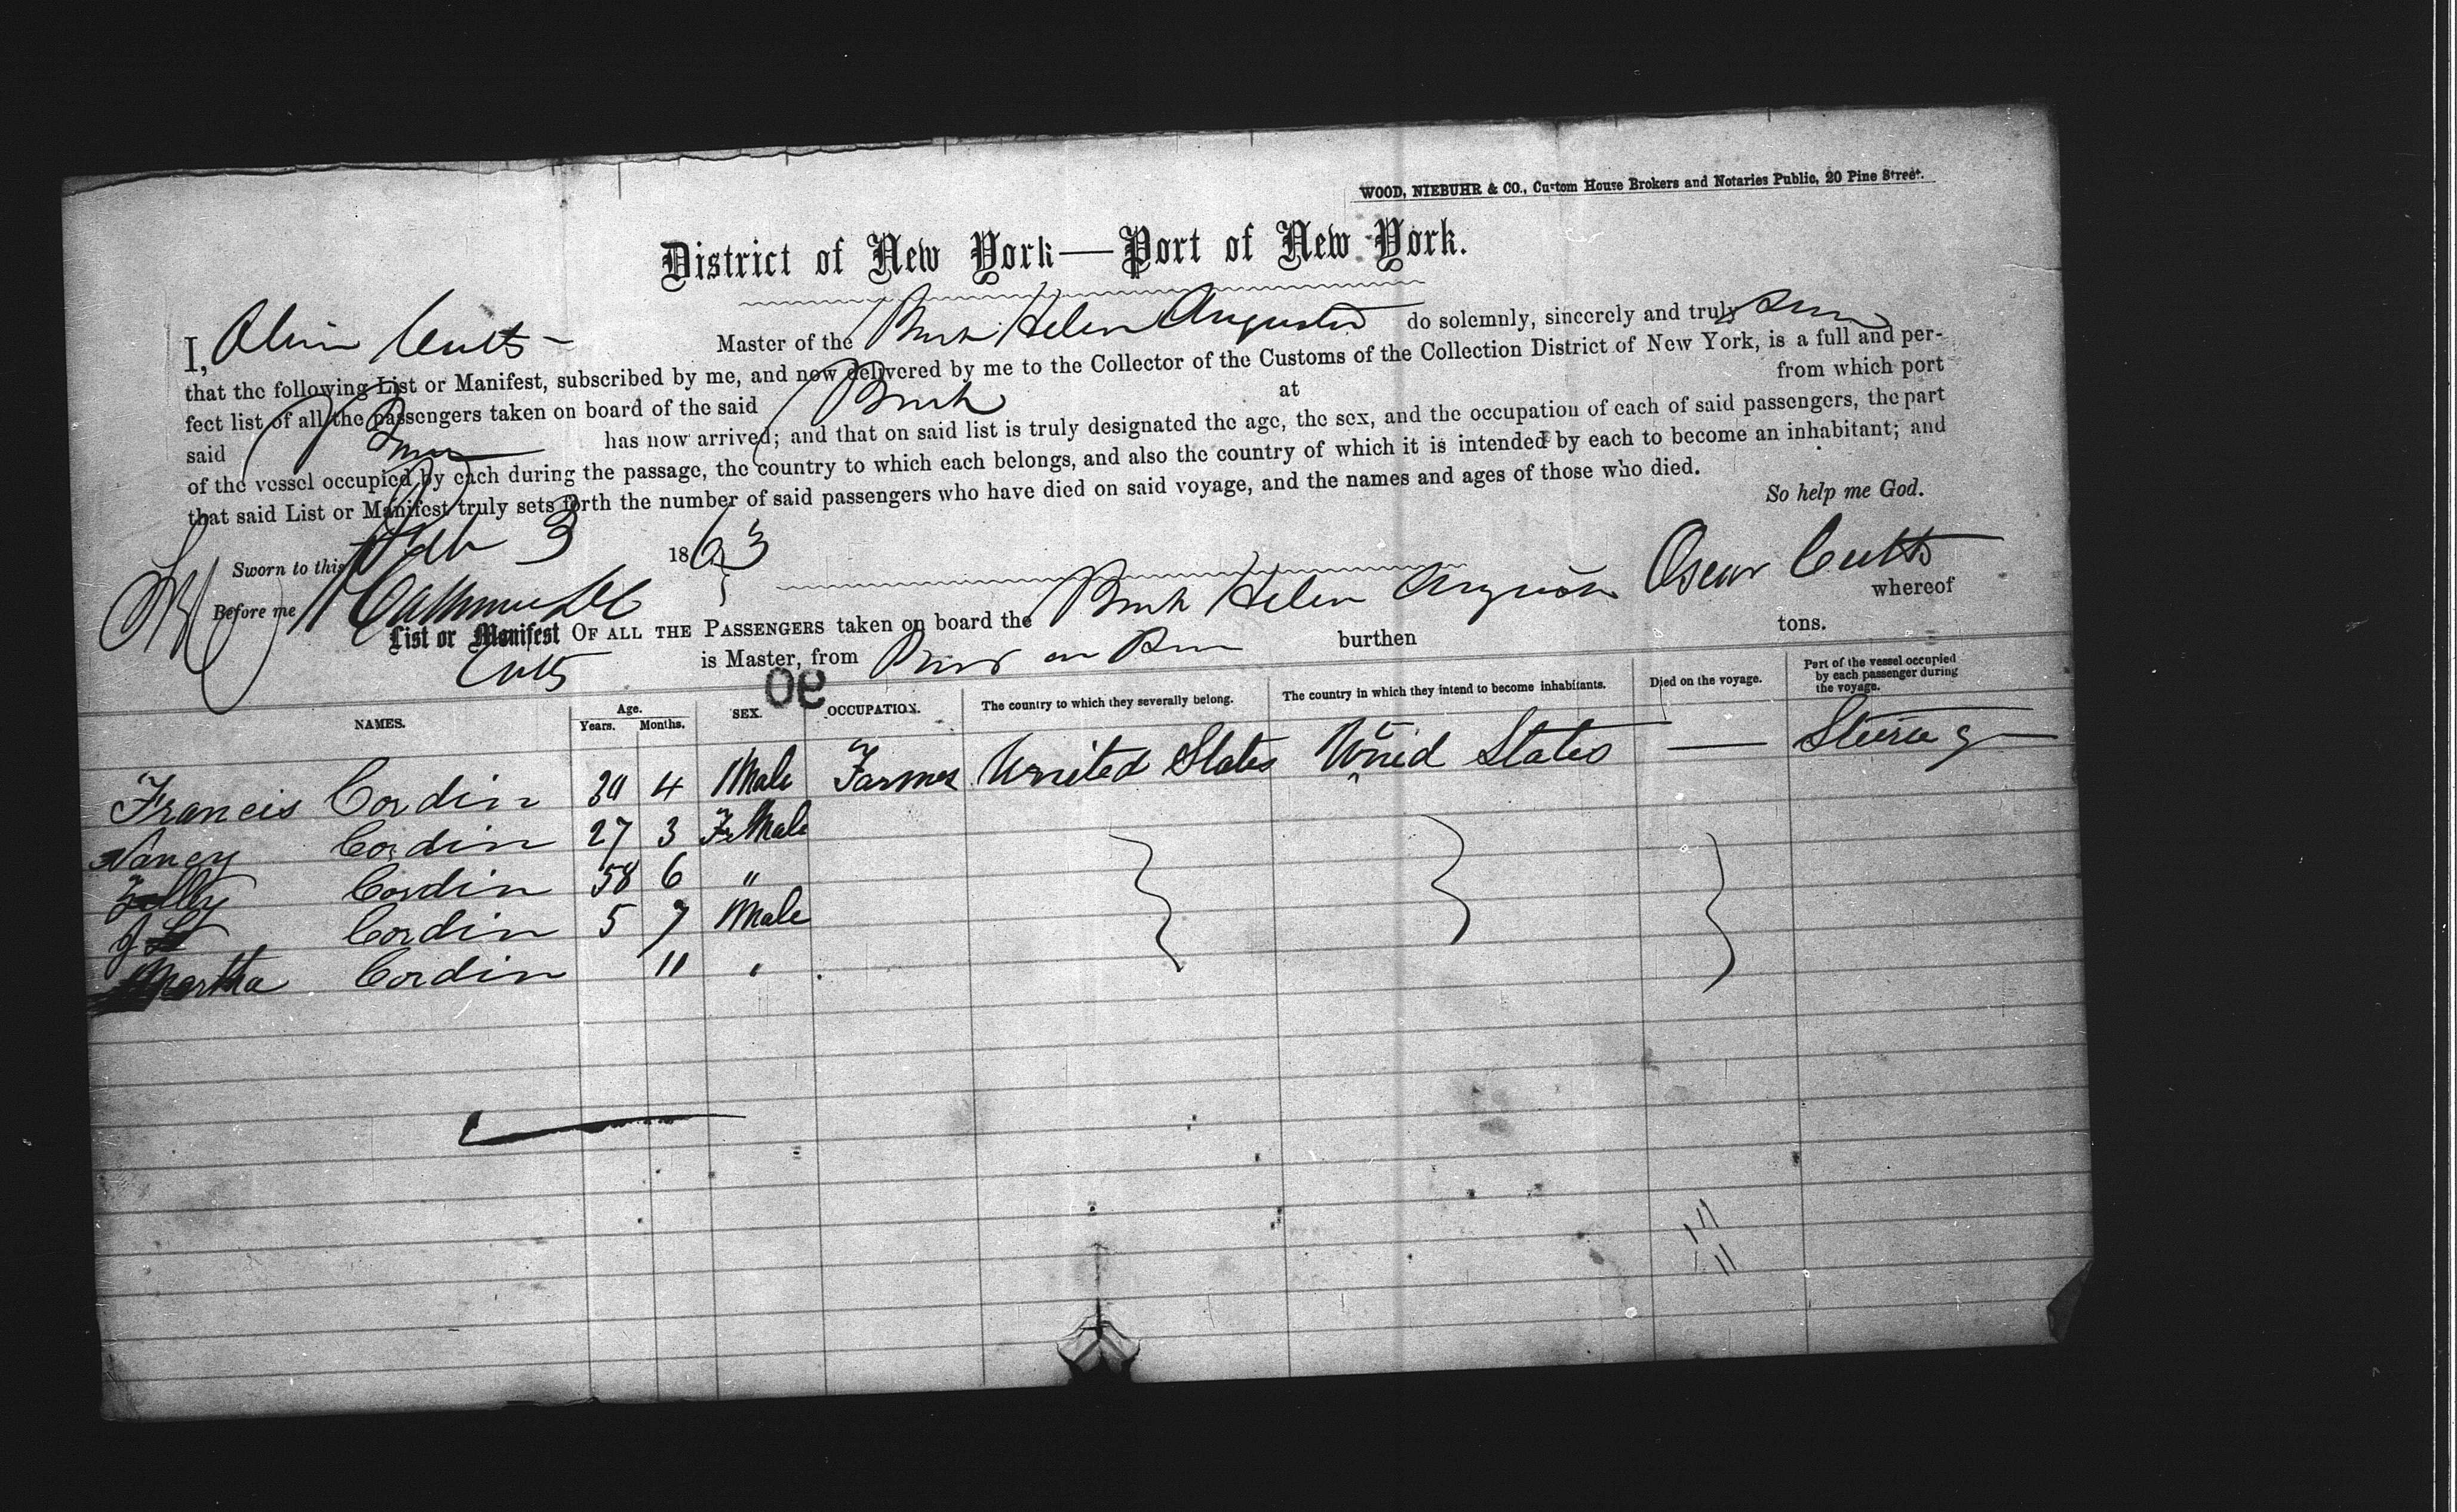 WOOD, NIEBUHR & CO., Custom House Brokers and Notaries Public, 20 Pine Street.
District of New York—Port of New York.
I, Cutts - Master of the Helen Augusta do solemnly, sincerely and truly
that the following List or Manifest, subscribed by me, and now delivered by me to the Collector of the Customs of the Collection District of New York, is a full and per-
fect list of all the passengers taken on board of the said at from which port
said has now arrived; and that on said list is truly designated the age, the sex, and the occupation of each of said passengers, the part
of the vessel occupied by each during the passage, the country to which each belongs, and also the country of which it is intended by each to become an inhabitant; and
that said List or Manifest truly sets forth the number of said passengers who have died on said voyage, and the names and ages of those who died.
So help me God.
Sworn to this Feb 3 1863
Before me
List or Manifest OF ALL THE PASSENGERS taken on board the Helen Oscar Cutts whereof
Cutts is Master, from burthen tons.
90
NAMES. Age. Years. Months. SEX. OCCUPATION. The country to which they severally belong. The country in which they intend to become inhabitants. Died on the voyage. Part of the vessel occupied by each passenger during the voyage.
Francis Cordin 4 Male Farmer United States Unied States — Steerage
Nancy Cordin 27 3 FeMale
Cordin 58 6 "
J Cordin 5 7 Male
Martha Cordin 11 "